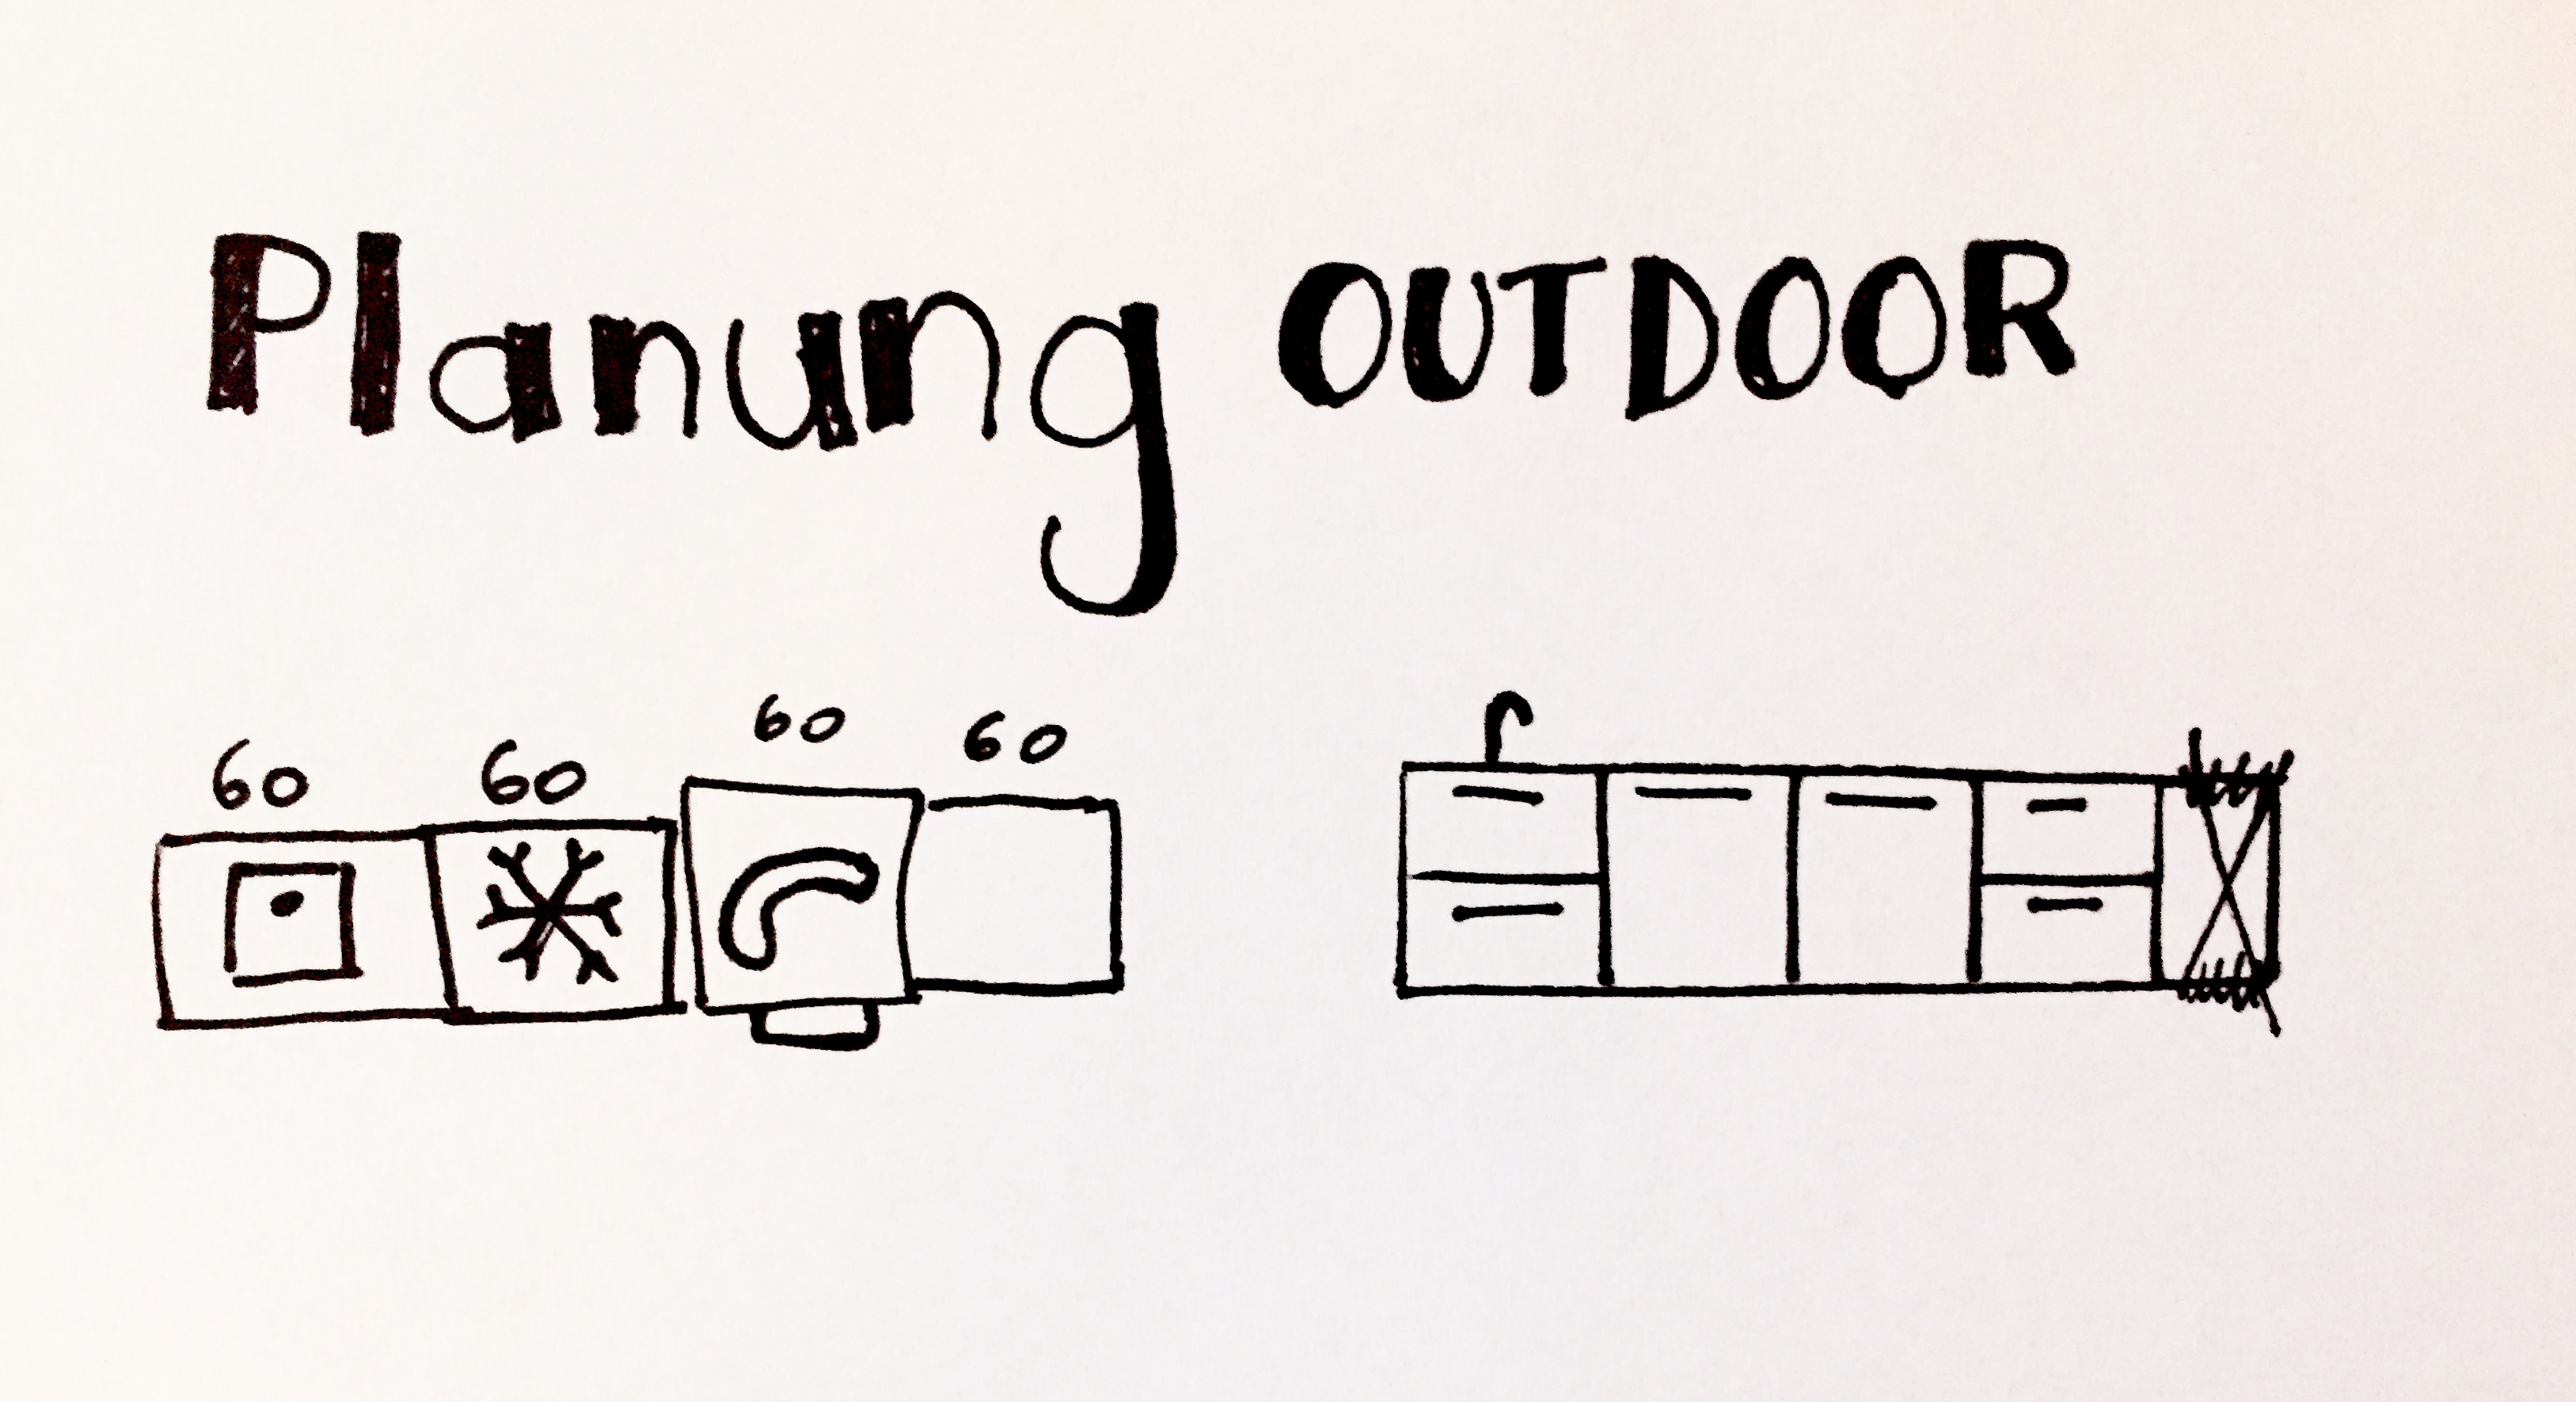 Planung OUTDOOR
60 60 60 60